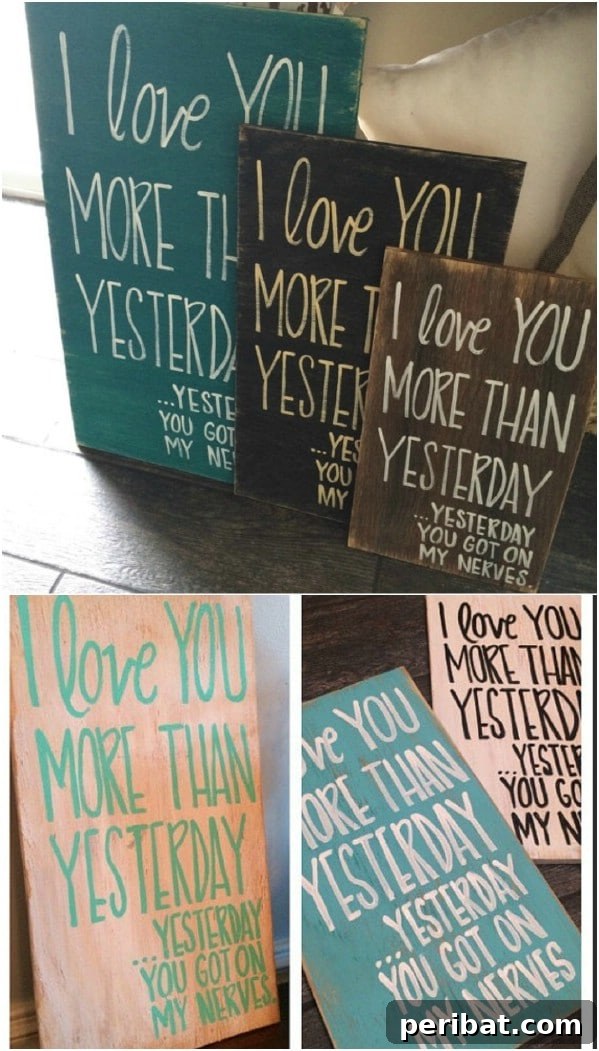 I love YOU
MORE TH
YESTERDA
...YESTE
YOU GOT
MY NE
I love YOU
MORE T
YESTER
...YES
YOU
MY
I love YOU
MORE THAN
YESTERDAY
...YESTERDAY
YOU GOT ON
MY NERVES.
I love YOU
MORE THAN
YESTERDAY
...YESTERDAY
YOU GOT ON
MY NERVES.
ove YOU
MORE THAN
YESTERDAY
...YESTERDAY
YOU GOT ON
MY NERVES
I love YOU
MORE THAN
YESTERD
...YESTER
YOU GO
MY N
peribat.com